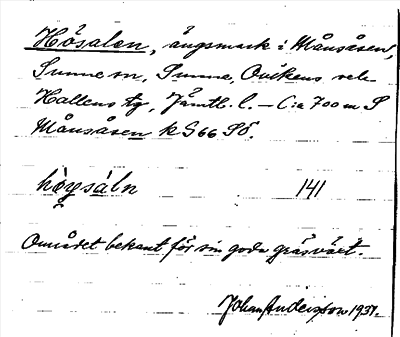 Hösalen, ängsmark i Månsåsen,
Sunne sn, Sunne, Ovikens och
Hallens tg, Jämtl. l. – C:a 700 m S
Månsåsen k S 66 Sö.
141
Området bekant för sin goda gräsväxt.
Johan Andersson 1937.